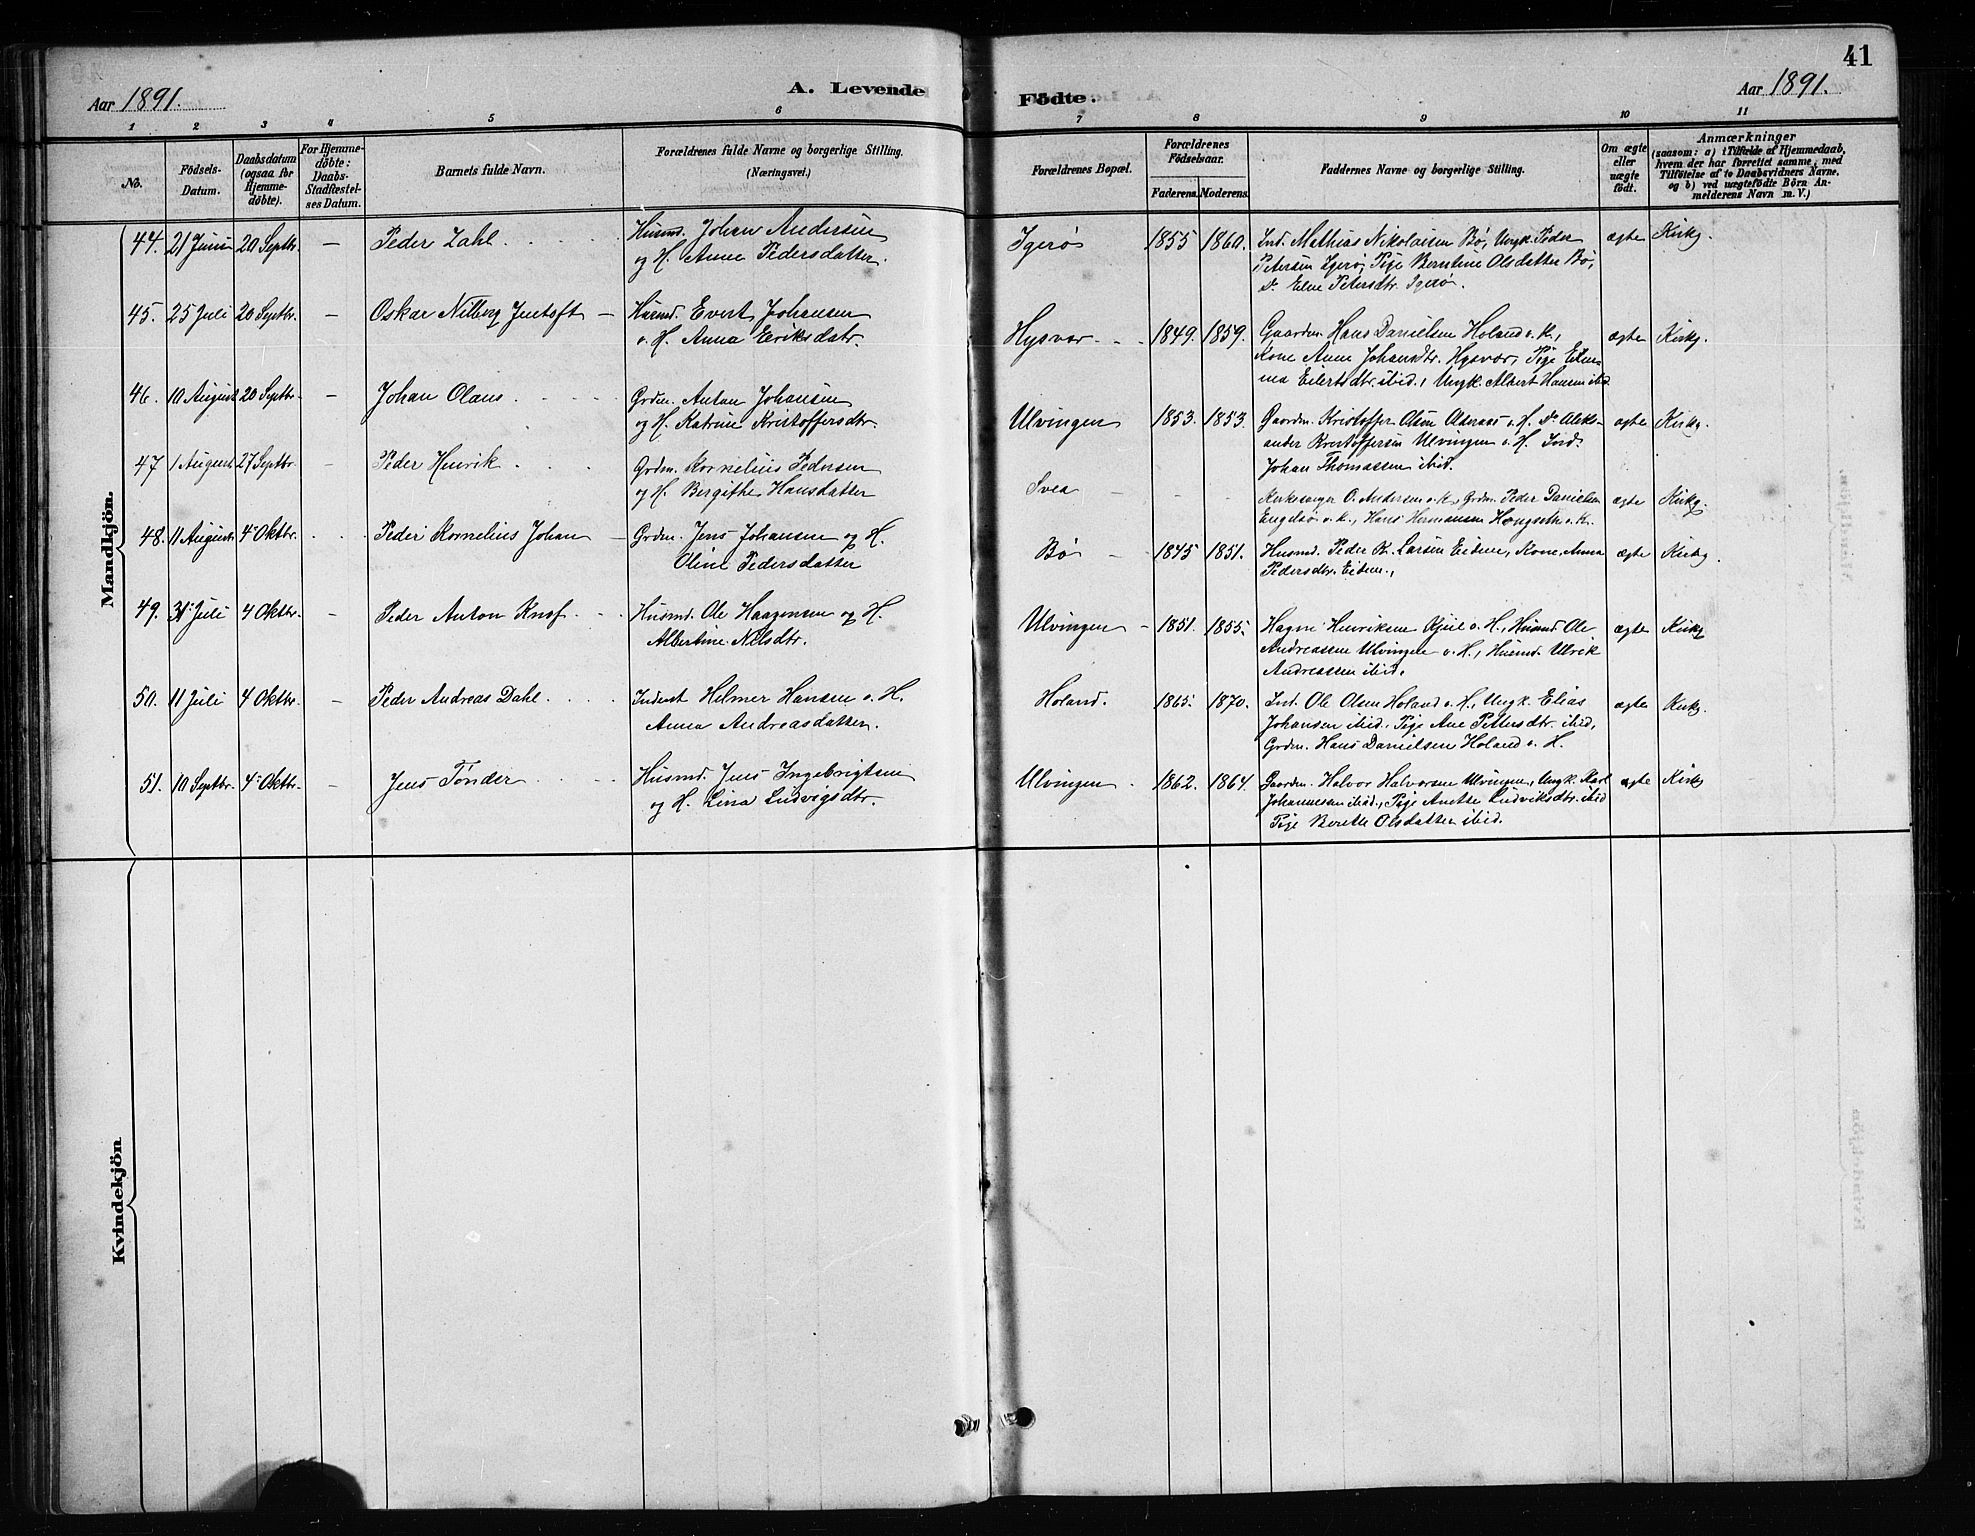 41
Aar 1891.
A. Levende
Födte.
Aar 1891.
1 2 3 4 5 6 7 8 9 10 11
No.
Födsels-
Datum.
Daabsdatum
(ogsaa for
Hjemme-
döbte).
For Hjemme-
döbte:
Daabs-
Stadfæstel-
ses Datum.
Barnets fulde Navn.
Forældrenes fulde Navne og borgerlige Stilling.
(Næringsvei.)
Forældrenes Bopæl.
Forældrenes
Födselsaar.
Faderens. Moderens.
Faddernes Navne og borgerlige Stilling.
Om ægte
eller
uægte
födt.
Anmærkninger
(saasom: a) i Tilfælde af Hjemmedaab,
hvem der har forrettet samme, med
Tilföielse af to Daabsvidners Navne,
og b) ved uægtefödte Börn An-
melderens Navn m. V.)
Mandkjön.
44. 21 Juni 20 Septbr. — Peder Zahl Husmd. Johan Andersen
og H. Anne Pedersdatter.
Igerø 1855 1860. Ind. Mathias Nikolaisen Bø, Ungk. Peder
Petersen Igerø, Pige Berntine Olsdatter Bø,
do Eline Petersdtr. Igerø. ægte Kirkg.
45. 25 Juli 20 Septbr. — Oskar Nilberg Jentoft — Husmd. Evert Johansen
o. H. Anna Eriksdatr.
Hysvær 1849. 1859. Gaardm. Hans Danielsen Holand o. K.,
Kone Anne Johansdtr. Hysvær, Pige
Eilertsdtr. ibid., Ungk. Albert Hansen ibid ægte Kirkg.
46. 10 August 20 Septbr. — Johan Olaus Grdm. Anton Johansen
og H. Katrine Kristoffersdtr.
Ulvingen 1853. 1853. Gaardm. Kristoffer Olsen o. H. do Aleks-
ander Kristoffersen Ulvingen o. H. Ind.
Johan Thomassen ibid. ægte Kirkg.
47 1 August 27 Septbr. — Peder Henrik Grdm. Kornelius Pedersen
og H. Bergithe Hansdatter
Svea — — — Kirkesanger O. Andersen o. K., Grdm. Peder Danielsen
Engelsø o. K., Hans Hermansen Hongseth o. K. ægte Kirkg.
48. 11 August 4 Oktbr. Peder Kornelius Johan — Grdm. Jens Johansen og H.
Oline Pedersdatter
Bø — 1845 1851. Husmd. Peder K. Larsen Eidem, Kone Anna
Pedersdtr. Eidem., ægte Kirkg.
49. 31 Juli 4 Oktbr. — Peder Anton Knof Husmd. Ole Haagensen og H.
Albertine Nilsdtr.
Ulvingen — 1851. 1855. Hagen Henriksen o. H., Husmd. Ole
Andreassen Ulvingen o. H., Husmd. Ulrik
Andreassen ibid. ægte Kirkg
50. 11 Juli 4 Oktbr. — Peder Andreas Dahl Inderst Helmer Hansen o. H.
Anna Andreasdatter.
Holand. 1865. 1870. Ind. Ole Olsen Holand o. H., Ungk. Elias
Johansen ibid, Pige Ane Pettersdtr. ibid,
Grdm. Hans Danielsen Holand o. H. ægte Kirkg.
51. 10 Septbr. 4 Oktbr. — Jens Tønder Husmd. Jens Ingebrigtsen
og H. Lina Ludvigsdtr.
Ulvingen 1862. 1864. Gaardm. Halvor Halvorsen Ulvingen, Ungk. Karl
Johannesen ibid., Pige Anette Ludviksdtr. ibid
Pige Berethe Olsdatter ibid. ægte Kirkg
Kvindekjön